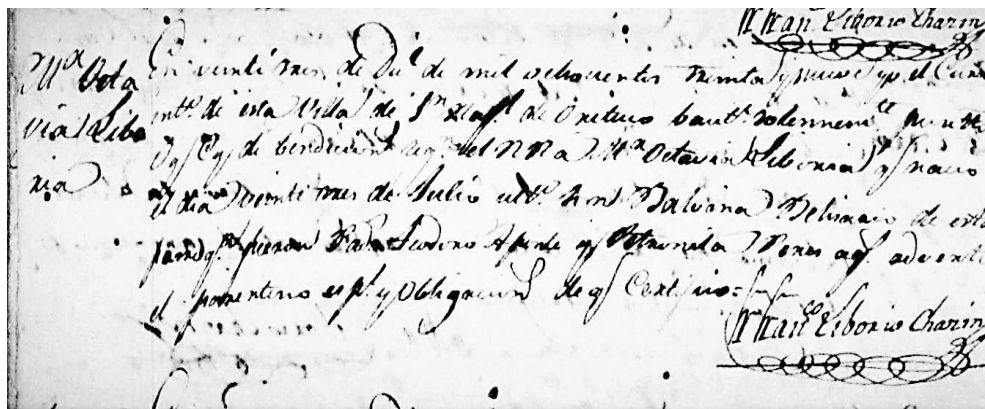 Fr. Fran.co Liborio Charin
M.a Octa
via Libo
ria
En veinti tres de Dic.e de mil ochocientos treinta y nueve yo el Cura
int.o de esta Villa de S.n Raf.l de Orituco baut.e solemnem.te
y bendicion.s seg.n el R R a M.a Octavia Liboria q.e nacio
el dia veinti tres de Julio ult.o h.n de Balvina Belisario de esta
fueron Pad.s Isidoro Aponte y Petronila Peres a q.s adverti
el parentesco esp.l y obligacion.s de q.e Certifico =
Fr. Fran.co Liborio Charin